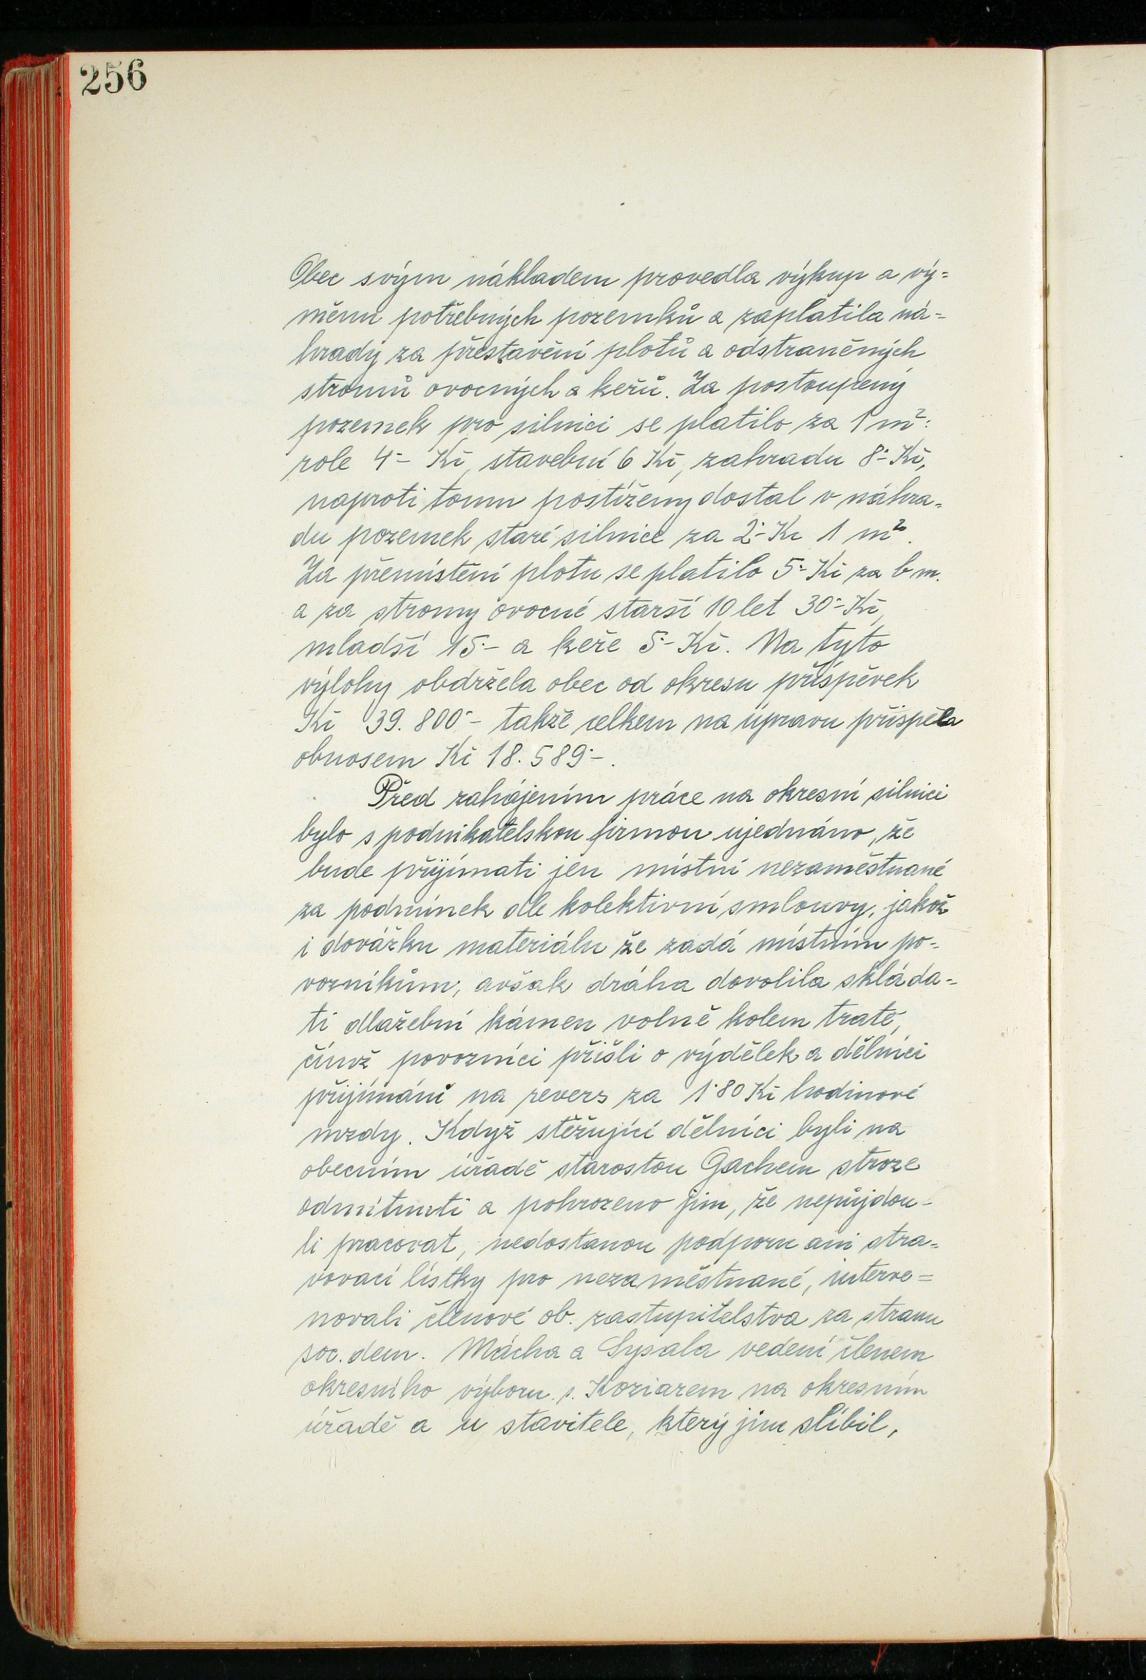 256
Obec svým nákladem provedla výkup a vý=
měnu potřebných pozemků a zaplatila ná=
hrady za přestavění plotů a odstraněných
stromů ovocných a keřů. Za postoupený
pozemek pro silnici se platilo za 1 m²:
role 4·- Kč, stavební 6 Kč, zahradu 8·- Kč,
naproti tomu postižený dostal v náhra-
du pozemek staré silnice za 2·- Kč 1 m².
Za přemístění plotu se platilo 5·- Kč za b m.
a za stromy ovocné starší 10 let 30·- Kč,
mladší 15·- a keře 5·- Kč. Na tyto
výlohy obdržela obec od okresu příspěvek
Kč 39.800·- takže celkem na úpravu přispěla
obnosem Kč 18.589·-.
Před zahájením práce na okresní silnici
bylo s podnikatelskou firmou ujednáno, že
bude přijímati jen místní nezaměstnané
za podmínek dle kolektivní smlouvy, jakož
i dovážku materiálu že zadá místním po-
vozníkům; avšak dráha dovolila skláda-
ti dlažební kámen volně kolem tratě,
čímž povozníci přišli o výdělek a dělníci
přijímáni na revers za 1·80 Kč hodinové
mzdy. Když stěžující dělníci byli na
obecním úřadě starostou Gachem stroze
odmítnuti a pohrozeno jim, že nepůjdou-
li pracovat, nedostanou podporu ani stra-
vovací lístky pro nezaměstnané, interve=
novali členové ob. zastupitelstva za stranu
soc. dem. Mácha a Sypala vedeni členem
okresního výboru s. Koziarem na okresním
úřadě a u stavitele, který jim slíbil,